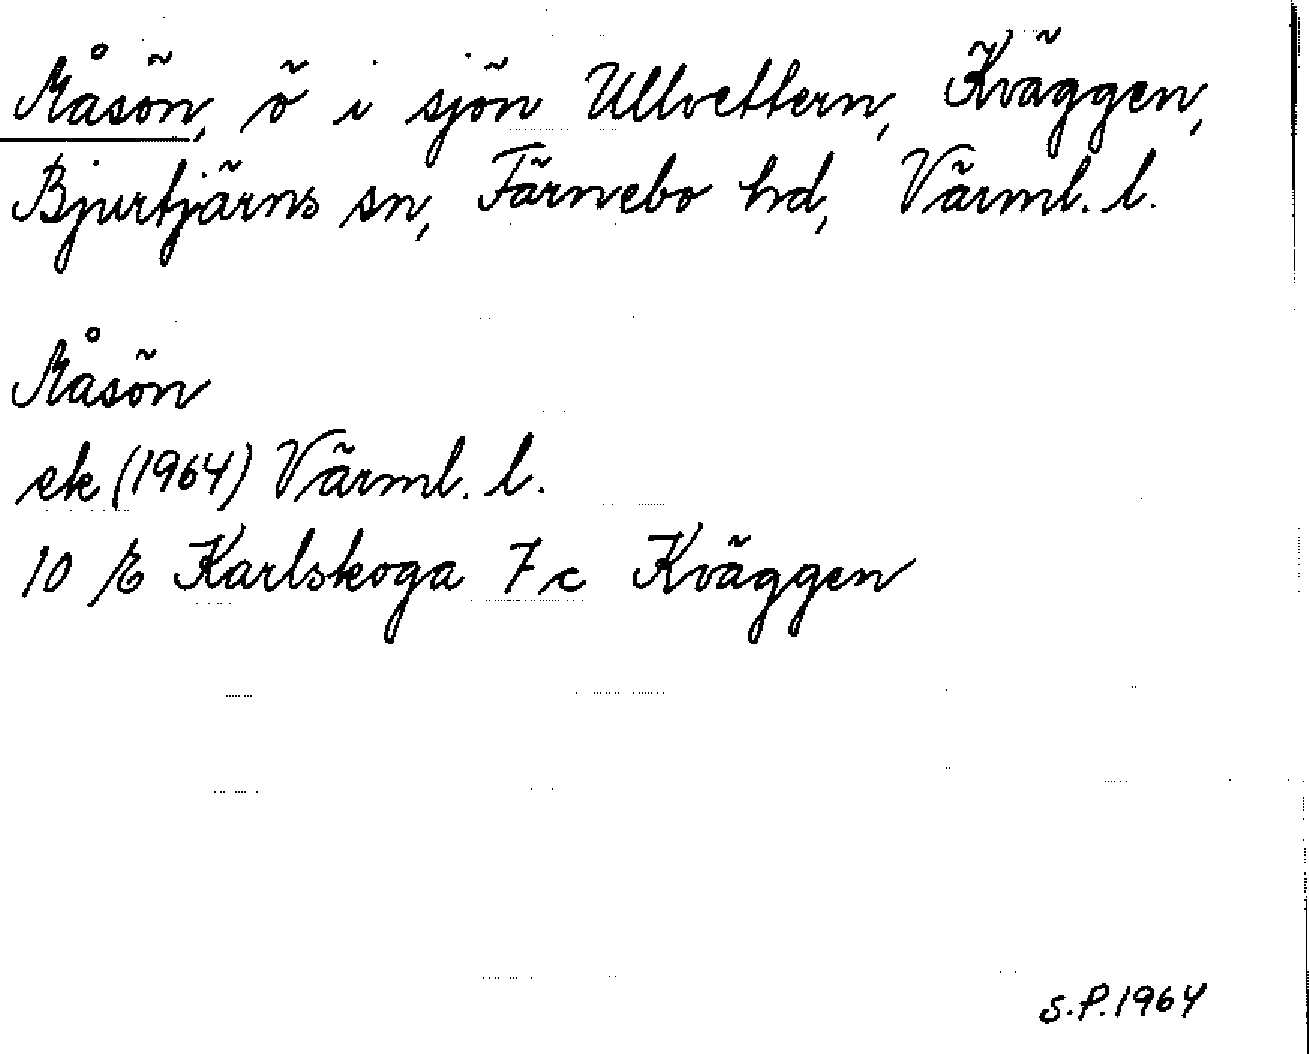 Måsön, ö i sjön Ullvettern, Kväggen,
Bjurtjärns sn, Färnebo hd, Värml. l.
Måsön
ek (1964) Värml. l.
10 E Karlskoga 7 c Kväggen
S.P. 1964